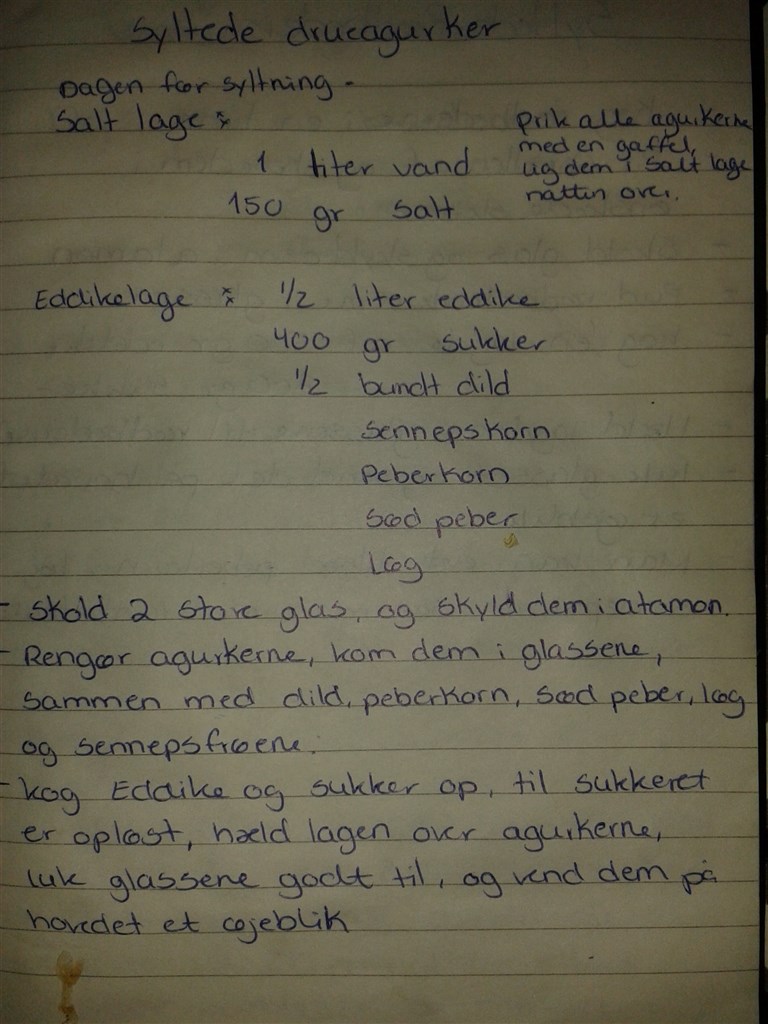 Syltede drueagurker
Dagen før syltning -
Salt lage :
1 liter vand
150 gr salt
Prik alle agurkerne
med en gaffel,
lig dem i salt lage
natten over.
Eddikelage : 1/2 liter eddike
400 gr sukker
1/2 bundt dild
Sennepskorn
Peberkorn
Sød peber
Løg
- Skold 2 store glas, og skyld dem i atamon.
- Rengør agurkerne, kom dem i glassene,
sammen med dild, peberkorn, sød peber, løg
og sennepsfrøene.
- Kog Eddike og sukker op, til sukkeret
er opløst, hæld lagen over agurkerne,
luk glassene godt til, og vend dem på
hovedet et øjeblik